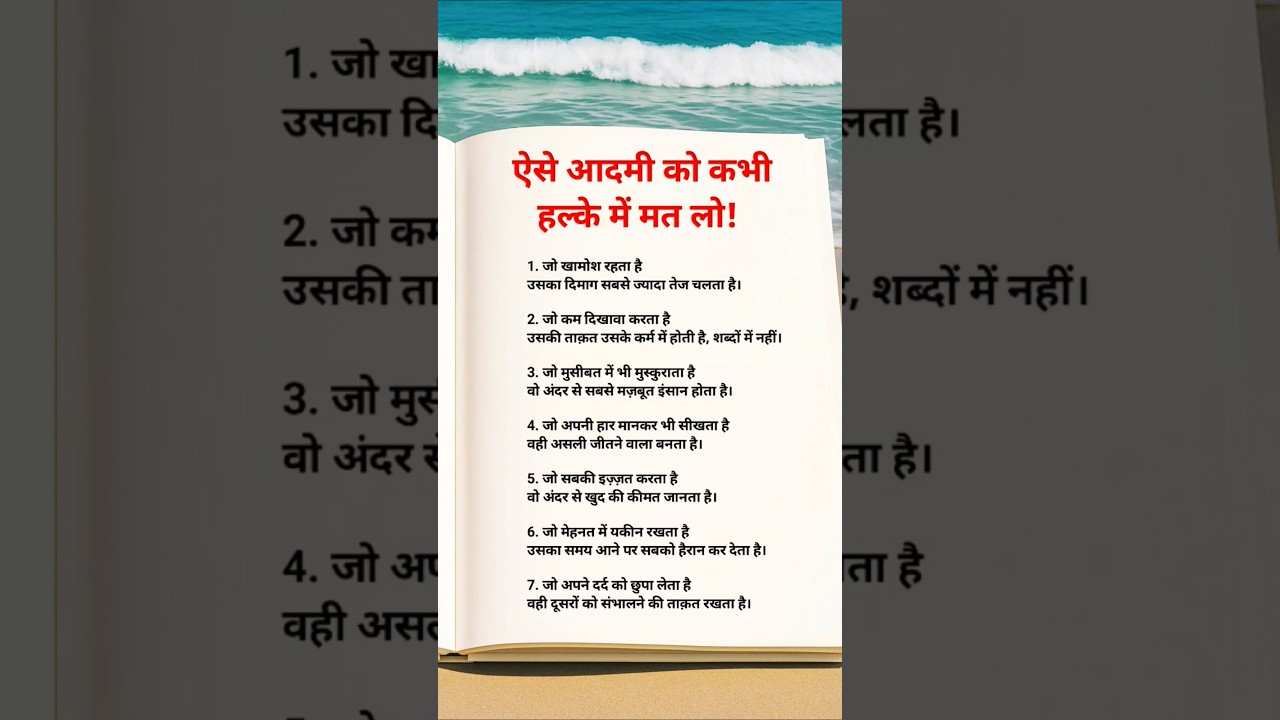 ऐसे आदमी को कभी
हल्के में मत लो!
1. जो खामोश रहता है
उसका दिमाग सबसे ज्यादा तेज चलता है।
2. जो कम दिखावा करता है
उसकी ताक़त उसके कर्म में होती है, शब्दों में नहीं।
3. जो मुसीबत में भी मुस्कुराता है
वो अंदर से सबसे मज़बूत इंसान होता है।
4. जो अपनी हार मानकर भी सीखता है
वही असली जीतने वाला बनता है।
5. जो सबकी इज़्ज़त करता है
वो अंदर से खुद की कीमत जानता है।
6. जो मेहनत में यकीन रखता है
उसका समय आने पर सबको हैरान कर देता है।
7. जो अपने दर्द को छुपा लेता है
वही दूसरों को संभालने की ताक़त रखता है।